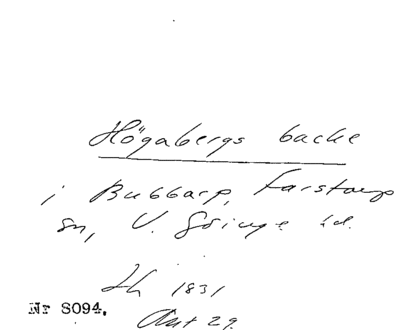 Högabergs backe
i Bubbarp, Farstorp
sn, V. Göinge hd.
Lh 1831
Ant 29.
Nr 8094.